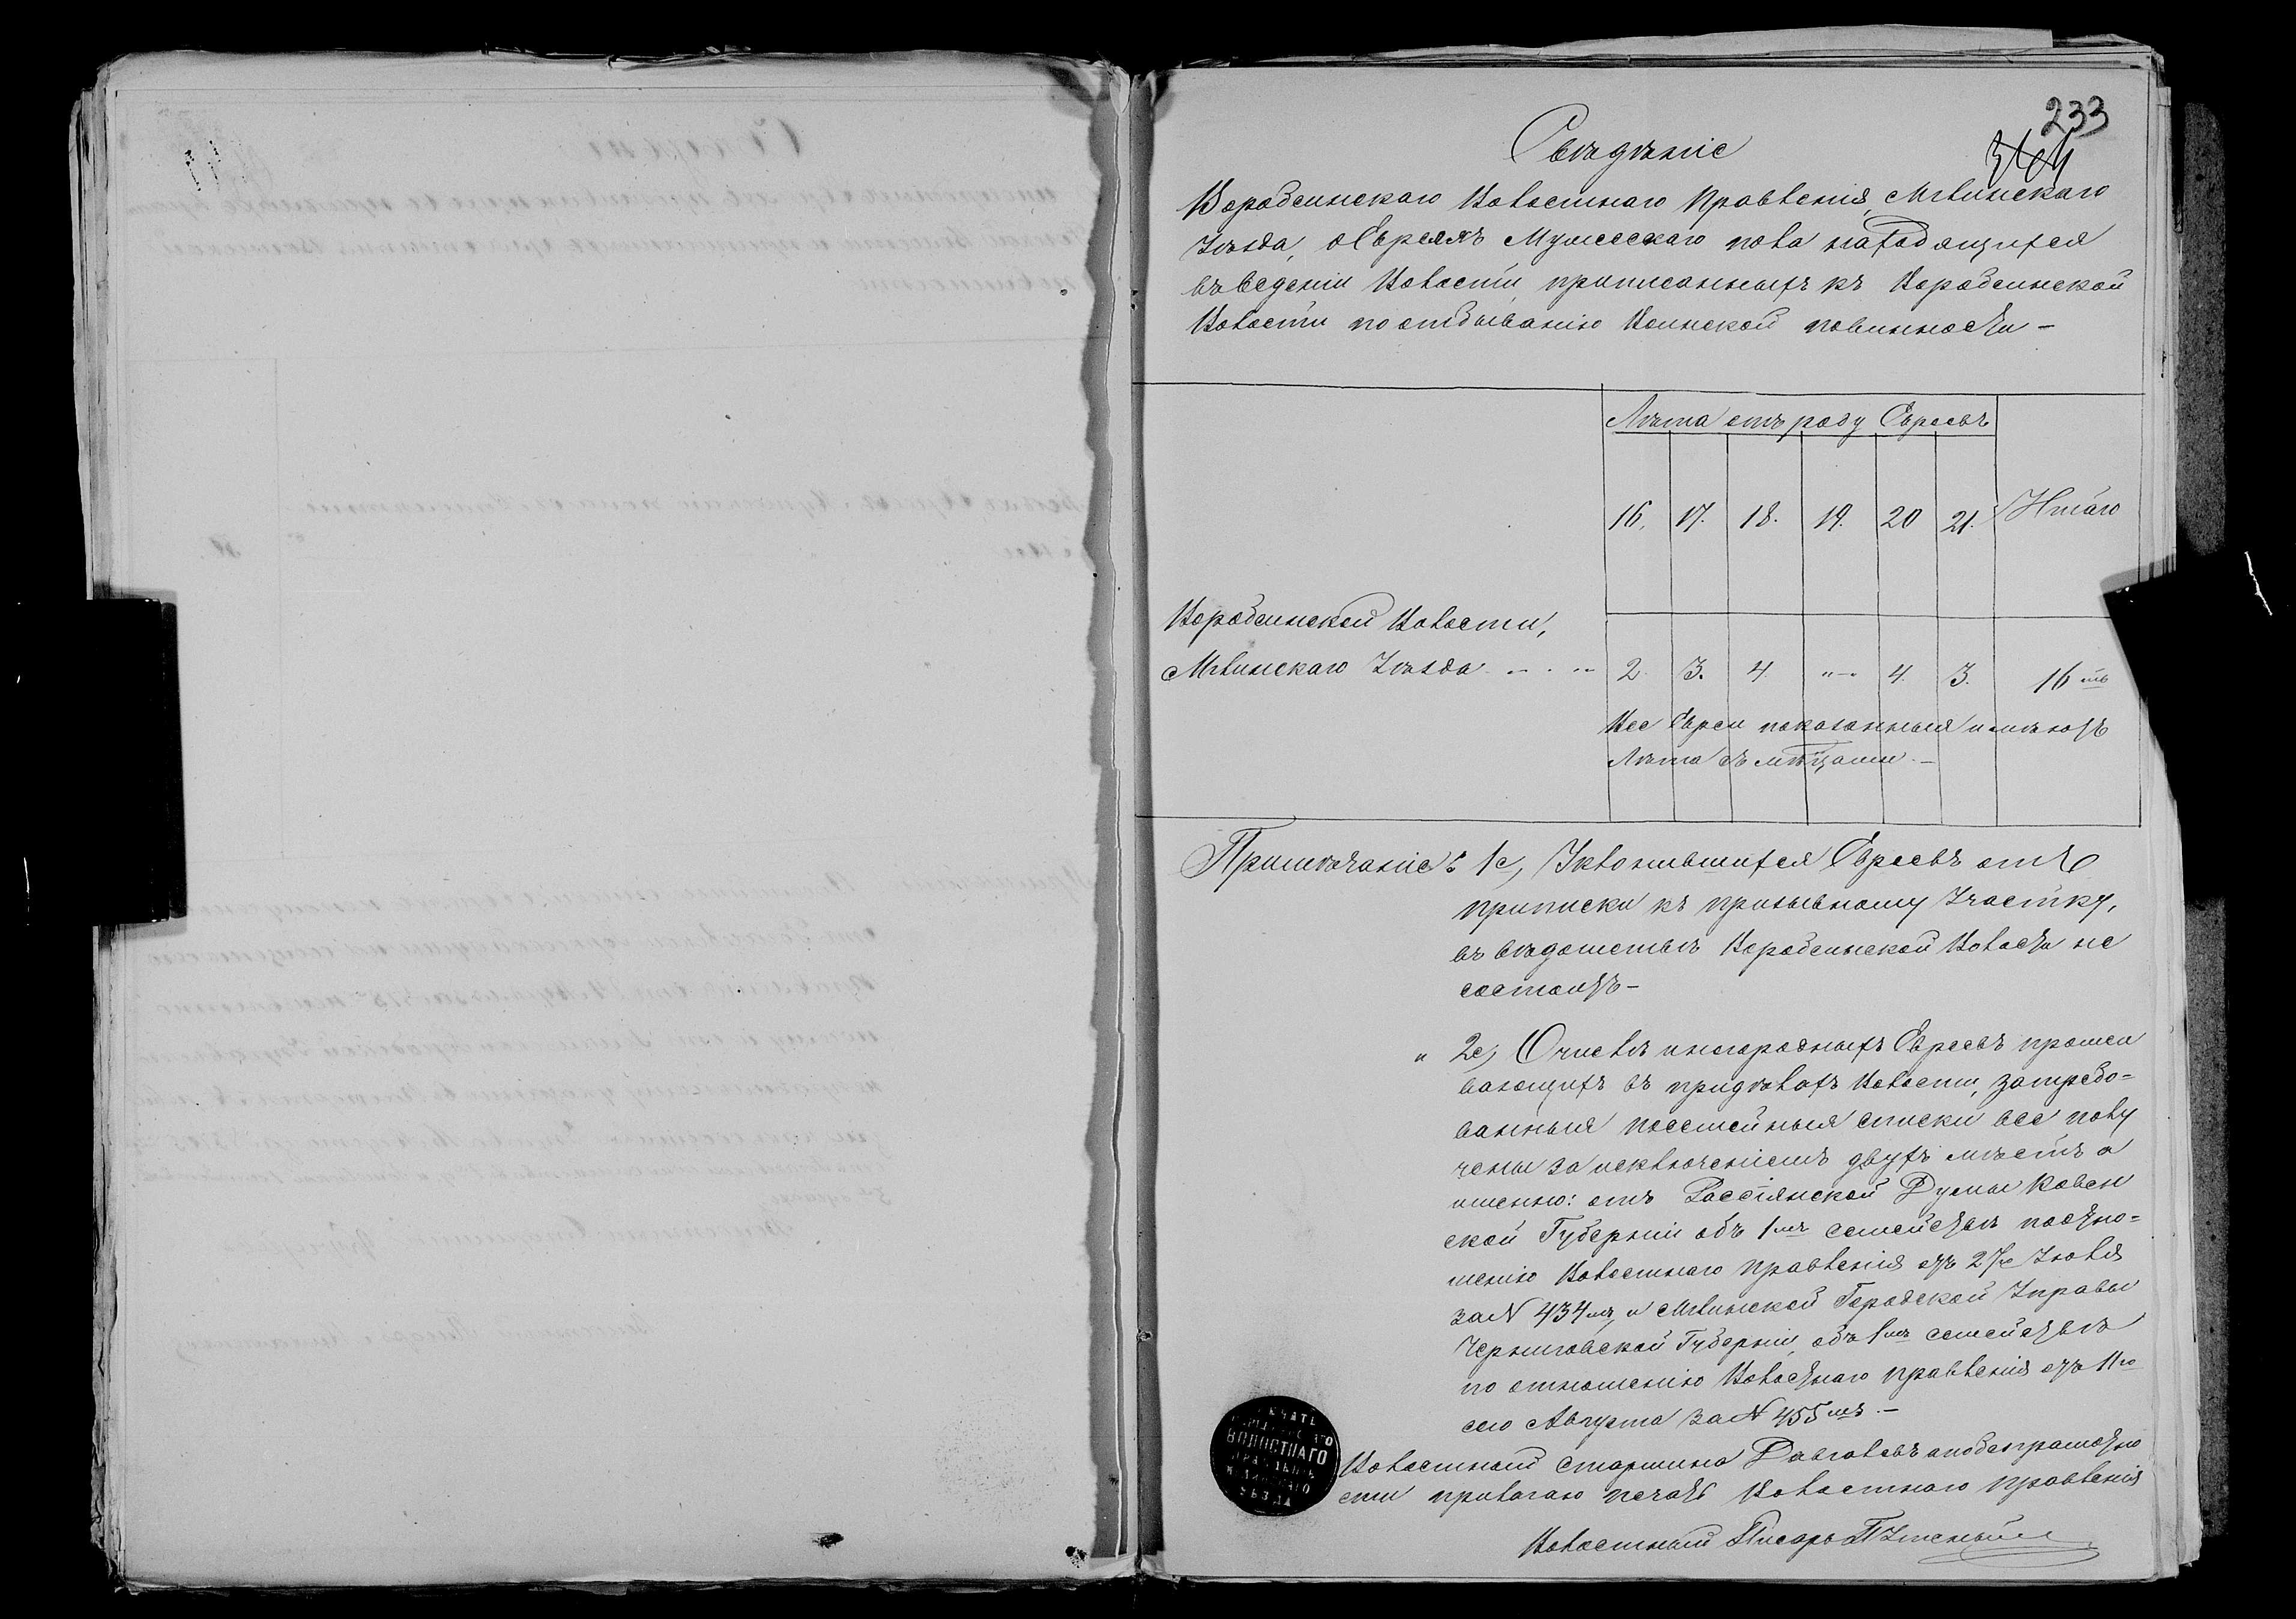 233
Свѣдѣніе
Вородеинскаго Волостнаго Правленія, Мглинскаго
Уѣзда, о Евреяхъ Мужескаго пола находящихся
въ ведѣніи Волости, приписанныхъ къ Вородеинской
Волости по отбыванію Воинской повинности –
Лѣта отъ роду Евреевъ
16. 17. 18. 19. 20 21. Итого
Вородеинской Волости,
Мглинскаго Уѣзда 2. 3. 4. „ – „ 4. 3. 16ть
Все Евреи показанныя имѣютъ
Лѣта съ мѣсяцами. –
Примѣчаніе: 1е, Уклонившихся Евреевъ отъ
приписки къ призывному Участку,
въ вѣдомствѣ Вородеинской Волости не
состоитъ –
„ 2е, О числѣ иногородныхъ Евреевъ прожи
вающихъ въ придѣлахъ Волости, затребо=
ванныя посемейныя списки все полу
чены за исключеніемъ двухъ мѣстъ а
именно: отъ Россіянской Думы Ковен
ской Губерніи объ 1мъ семействѣ по отно=
шенію Волостнаго Правленія отъ 27го Іюля
за N 434мъ, и Мглинской Городской Управы
Черниговской Губерніи, объ 1мъ семействѣ
по отношенію Волостнаго Правленія отъ 11го
сего Августа за N 455мъ. –
Волостный Старшина а по безграмотно
сти прилагаю печать Волостнаго Правленія
Волостный Писарь
ВОЛОСТНАГО
УѢЗДА